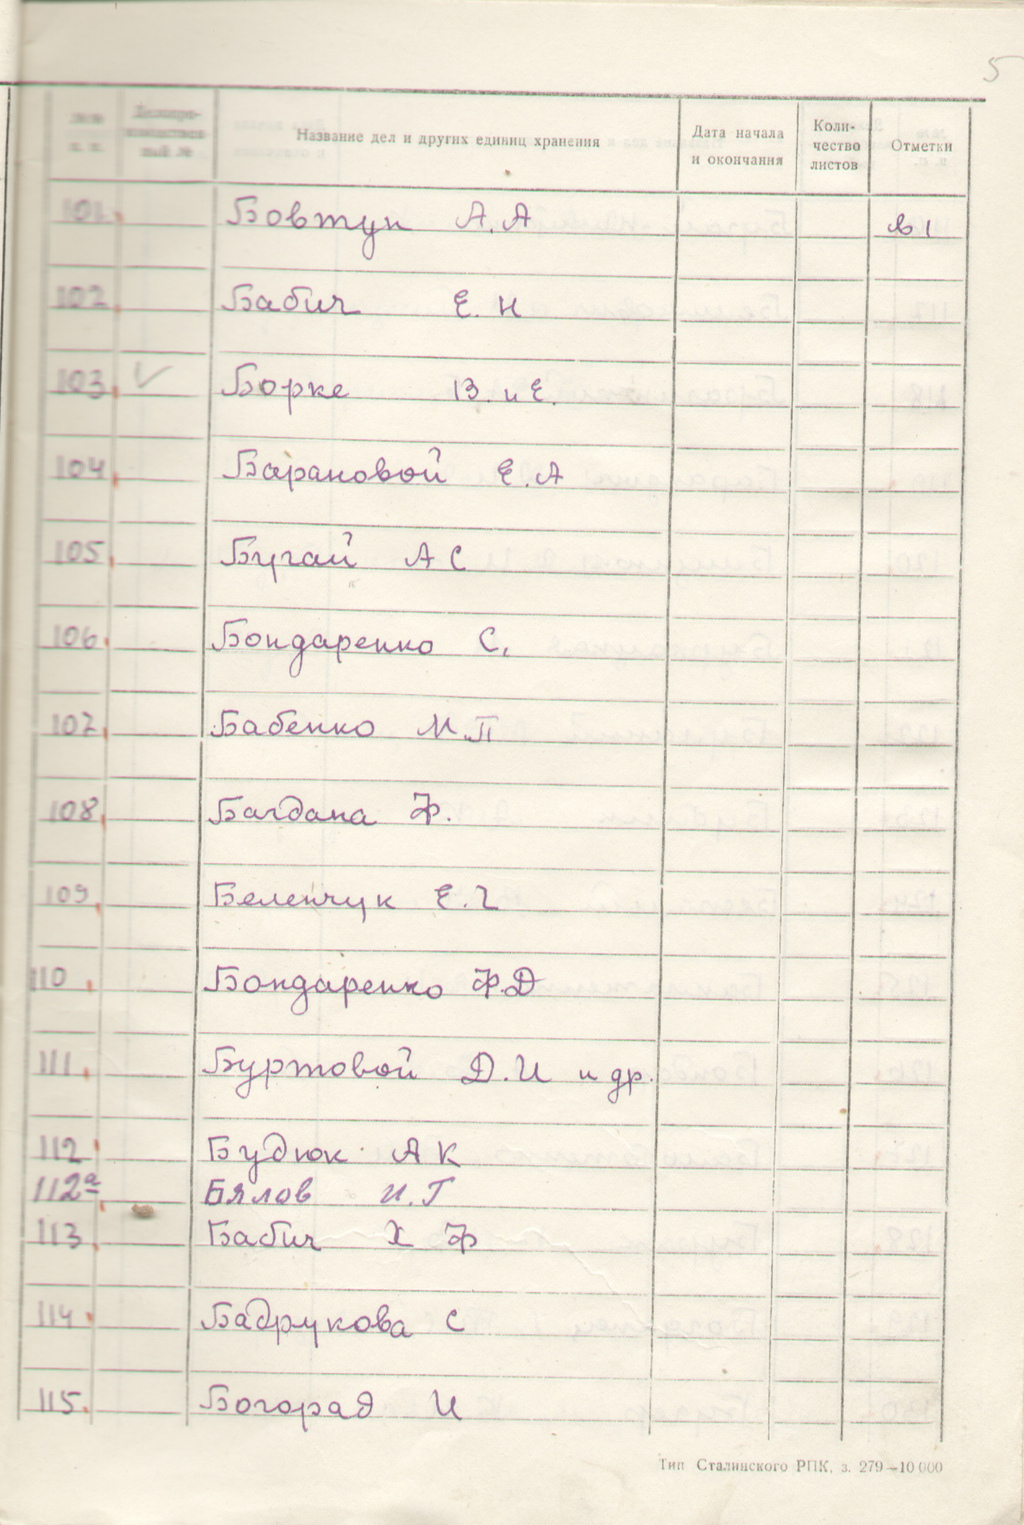 5
№№ п. п. Делопро- изводствен- ный № Название дел и других единиц хранения Дата начала и окончания Коли- чество листов Отметки
101. Бовтун А.А в 1
102. Бабич Е. Н
103. ✓ Борке В. и Е.
104. Барановой Е.А
105. Бугай А С
106. Бондаренко С.
107. Бабенко М.П
108. Багдана Ф.
109. Беленчук Е. Г
110. Бондаренко Ф.Д
111. Буртовой Д.И и др.
112. Будюк А К
112а. Бялов И.Г
113. Бабич Х Ф
114. Бадрукова С
115. Богорад И
Тип Сталинского РПК, з. 279—10 000